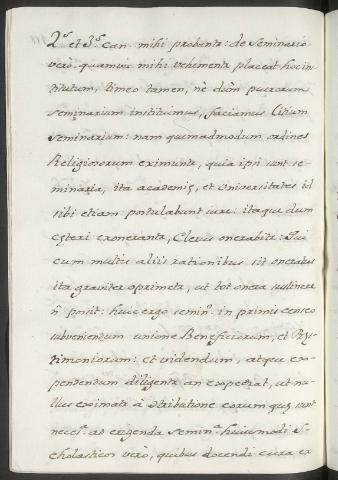 2.us et 3.us can. mihi probantr: de Seminario
vero quamvis mihi vehementr placeat hoc in-
stitutum, timeo tamen, nè dùm puerorum
seminarium instituimus, faciamus litium
seminarium: nam quemadmodum ordines
Religiosorum eximuntr, quia ipsi sunt se-
minaria, ita academiȩ, et Universitates id
sibi etiam postulabunt iure: itaque dum
cȩteri exonerantr, Clerus onerabitr: Qui
cum multis aliis rationibus sit oneratus
ita graviter opprimetr, ut tot onera sustinere
ñ possit: huic ergo semin.o in primis censeo
subveniendum unione Beneficiorum, et Pȩs-
timoniorum: et videndum, atque ex-
pendendum diligentr an expediat, ut nu-
llus eximatr à dtributione eorum quȩ sunt
necess.a ad erigenda semin.a huiusmodi S-
cholasticos verò, quibus docendi cura ex